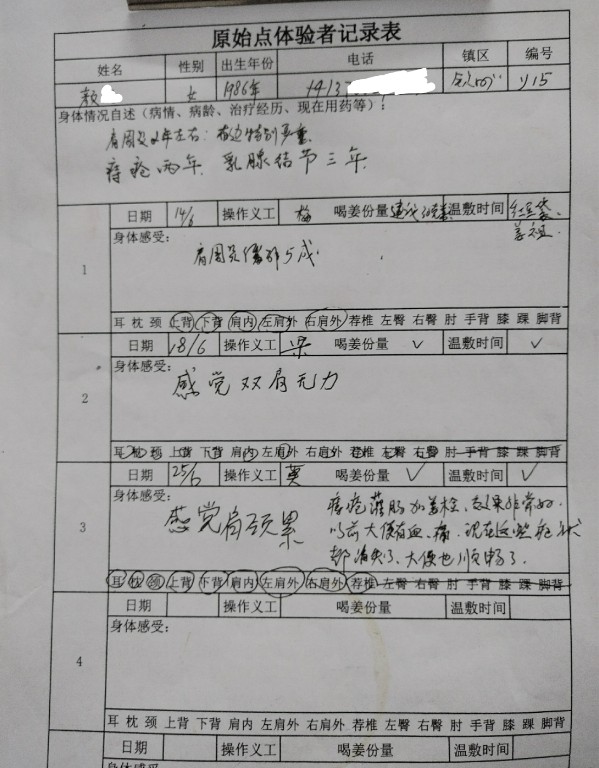 原始点体验者记录表
姓名 性别 出生年份 电话 镇区 编号
女 1986年 1413 y15
身体情况自述（病情、病龄、治疗经历、现在用药等）：
肩周炎2年左右：右边特别严重.
痔疮两年. 乳腺结节三年.
1
日期 14/6 操作义工 梅 喝姜份量 温敷时间 红豆袋.
身体感受：
肩周炎缓解5成.
耳 枕 颈 上背 下背 肩内 左肩外 右肩外 荐椎 左臀 右臀 肘 手背 膝 踝 脚背
2
日期 18/6 操作义工 梁 喝姜份量 ✓ 温敷时间 ✓
身体感受：
感觉双肩无力
耳 枕 颈 上背 下背 肩内 左肩外 右肩外 荐椎 左臀 右臀 肘 手背 膝 踝 脚背
3
日期 25/6 操作义工 喝姜份量 ✓ 温敷时间 ✓
身体感受：
感觉肩颈累
痔疮灌肠加姜栓，效果非常好.
以前大便有血、痛. 现在这些症状
都消失了、大便也顺畅了.
耳 枕 颈 上背 下背 肩内 左肩外 右肩外 荐椎 左臀 右臀 肘 手背 膝 踝 脚背
4
日期 操作义工 喝姜份量 温敷时间
身体感受：
耳 枕 颈 上背 下背 肩内 左肩外 右肩外 荐椎 左臀 右臀 肘 手背 膝 踝 脚背
日期 操作义工 喝姜份量 温敷时间
身体感受：